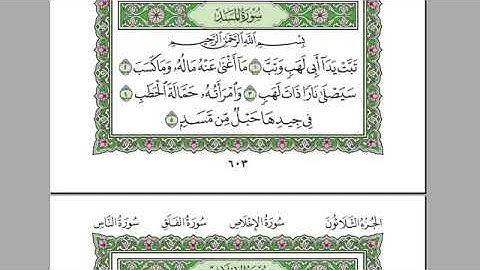 سُورَةُ المَسَدِ
بِسْمِ اللَّهِ الرَّحْمَٰنِ الرَّحِيمِ
تَبَّتْ يَدَا أَبِي لَهَبٍ وَتَبَّ ١ مَا أَغْنَىٰ عَنْهُ مَالُهُ وَمَا كَسَبَ ٢
سَيَصْلَىٰ نَارًا ذَاتَ لَهَبٍ ٣ وَامْرَأَتُهُ حَمَّالَةَ الْحَطَبِ ٤
فِي جِيدِهَا حَبْلٌ مِّن مَّسَدٍ ٥
٦٠٣
الجُزءُ الثَّلَاثُونَ سُورَةُ الإِخْلَاصِ سُورَةُ الفَلَقِ سُورَةُ النَّاسِ